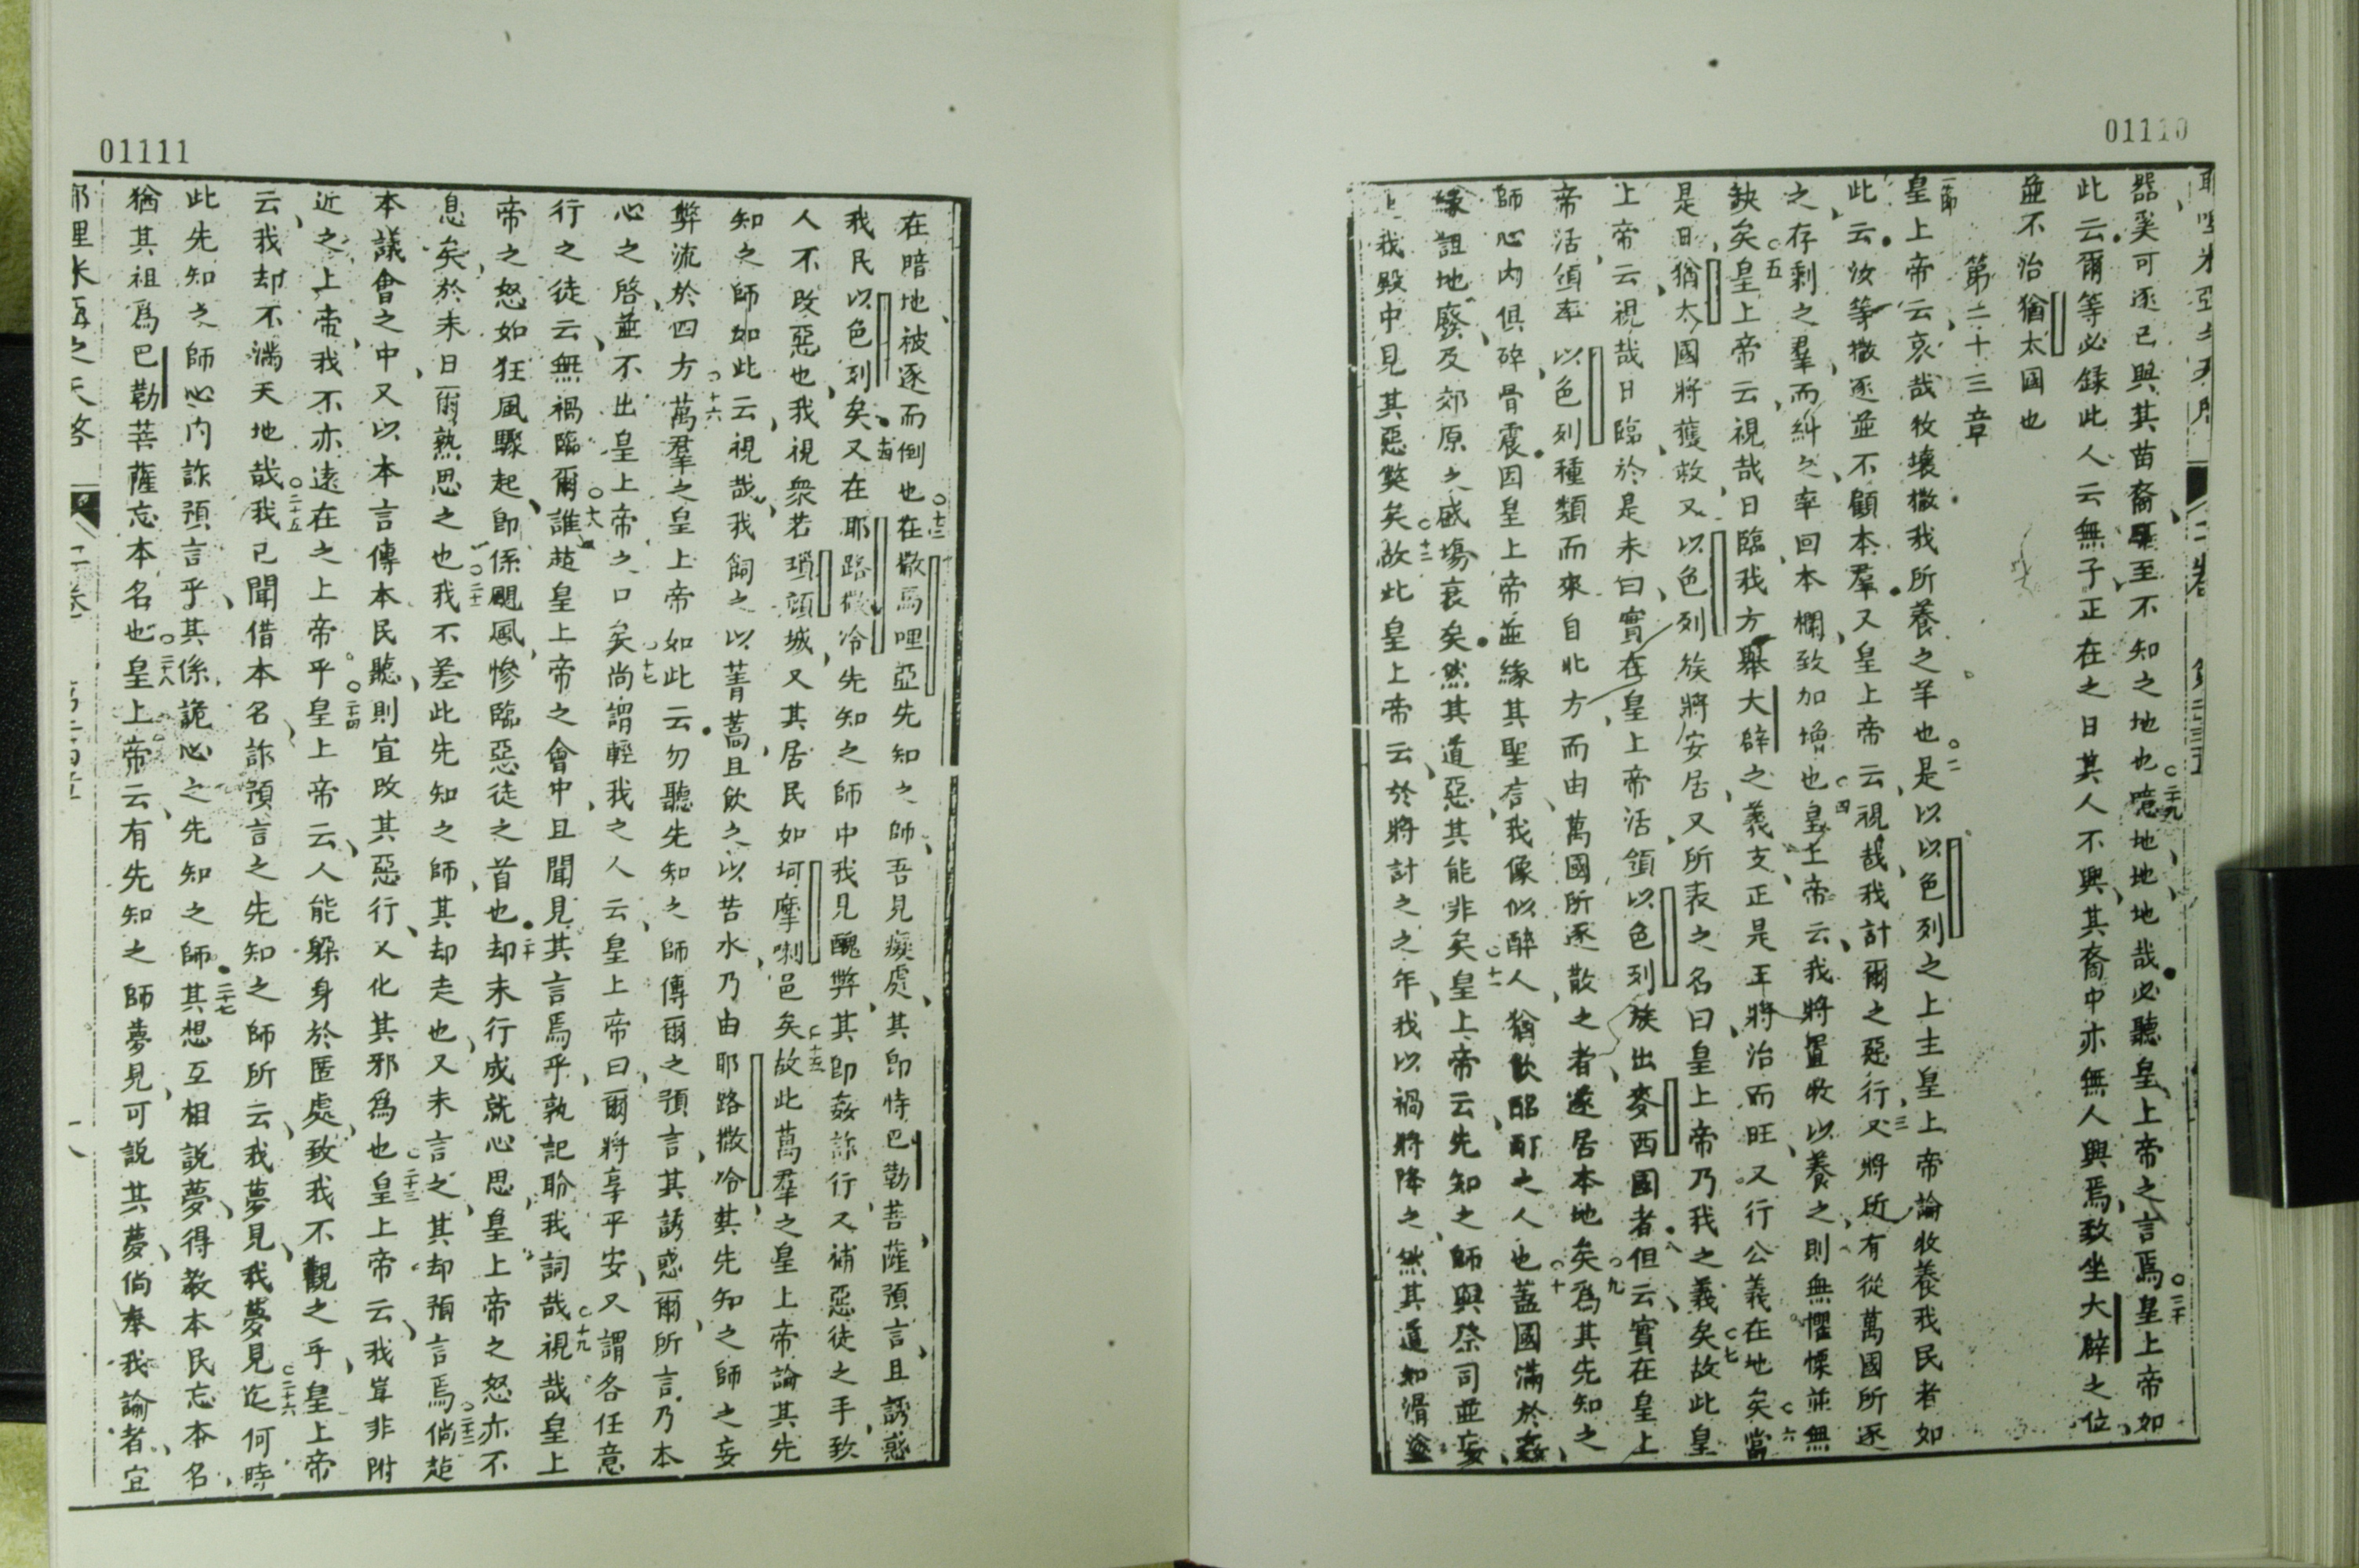 01110
器奚可逐已與其苗裔驅至不知之地也噫地地地哉必聽皇上帝之言焉皇上帝如
二十九
三十
此云爾等必錄此人云無子正在之日其人不興其裔中亦無人興焉致坐大辟之位
並不治猶太國也
第二十三章
一節
皇上帝云哀哉牧壞撒我所養之羊也是以以色列之上主皇上帝論牧養我民者如
二
此云汝等撒逐並不顧本羣又皇上帝云視哉我計爾之惡行又將所有從萬國所逐
三
之存剩之羣而糾之率回本欄致加增也皇上帝云我將置牧以養之則無懼慄並無
四
缺矣皇上帝云視哉日臨我方舉大辟之義支正是王將治而旺又行公義在地矣當
五
六
是日猶太國將獲救又以色列族將安居又所表之名曰皇上帝乃我之義矣故此皇
七
上帝云視哉日臨於是未曰實在皇上帝活領以色列族出麥西國者但云實在皇上
八
帝活偵率以色列種類而來自北方而由萬國所逐散之者遂居本地矣爲其先知之
九
師心內俱碎骨震因皇上帝並緣其聖言我像似醉人猶飲酩酊之人也蓋國滿於姦
十
緣詛地廢及郊原之盛塲衰矣然其道惡其能非矣皇上帝云先知之師與祭司並妄
十一
且我殿中見其惡獘矣故此皇上帝云於將計之之年我以禍將降之然其道如滑塗
十二
01111
在暗地被逐而倒也在撒馬哩亞先知之師吾見癡處其卽恃巴勒菩薩預言且誘惑
十三
我民以色列矣又在耶路撒冷先知之師中我見醜獘其卽姦詐行又補惡徒之手致
十四
人不改惡也我視衆若瑣頭城又其居民如坷摩喇邑矣故此萬羣之皇上帝論其先
十五
知之師如此云視哉我飼之以菁蒿且飲之以苦水乃由耶路撒冷其先知之師之妄
獘流於四方萬羣之皇上帝如此云勿聽先知之師傳爾之預言其誘惑爾所言乃本
十六
心之啓並不出皇上帝之口矣尚謂輕我之人云皇上帝曰爾將享平安又謂各任意
十七
行之徒云無禍臨爾誰趂皇上帝之會中且聞見其言焉乎孰記聆我詞哉視哉皇上
十八
十九
帝之怒如狂風驟起卽係颶風慘臨惡徒之首也却未行成就心思皇上帝之怒亦不
二十
息矣於末日爾熟思之也我不差此先知之師其却走也又未言之其却預言焉倘趂
二十一
二十二
本議會之中又以本言傳本民聽則宜改其惡行又化其邪爲也皇上帝云我豈非附
二十三
近之上帝我不亦遠在之上帝乎皇上帝云人能躲身於匿處致我不觀之乎皇上帝
二十四
云我却不滿天地哉我已聞借本名詐預言之先知之師所云我夢見我夢見迄何時
二十五
二十六
此先知之師心內詐預言乎其係詭心之先知之師其想互相說夢得教本民忘本名
二十七
猶其祖爲巴勒菩薩忘本名也皇上帝云有先知之師夢見可說其夢倘奉我諭者宜
二十八